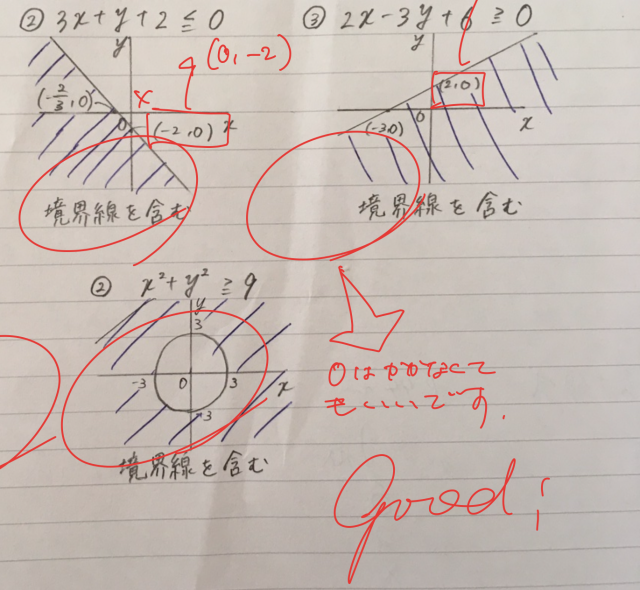 ② 3x + y + 2 ≦ 0
y
(0, -2)
(-2/3, 0)
0
(-2, 0)
x
境界線を含む
③ 2x - 3y + 6 ≧ 0
y
(2, 0)
(-3.0)
0
x
境界線を含む
② x² + y² ≧ 9
y
3
-3
0
3
x
-3
境界線を含む
0はかかなくて
もいいです.
Good!